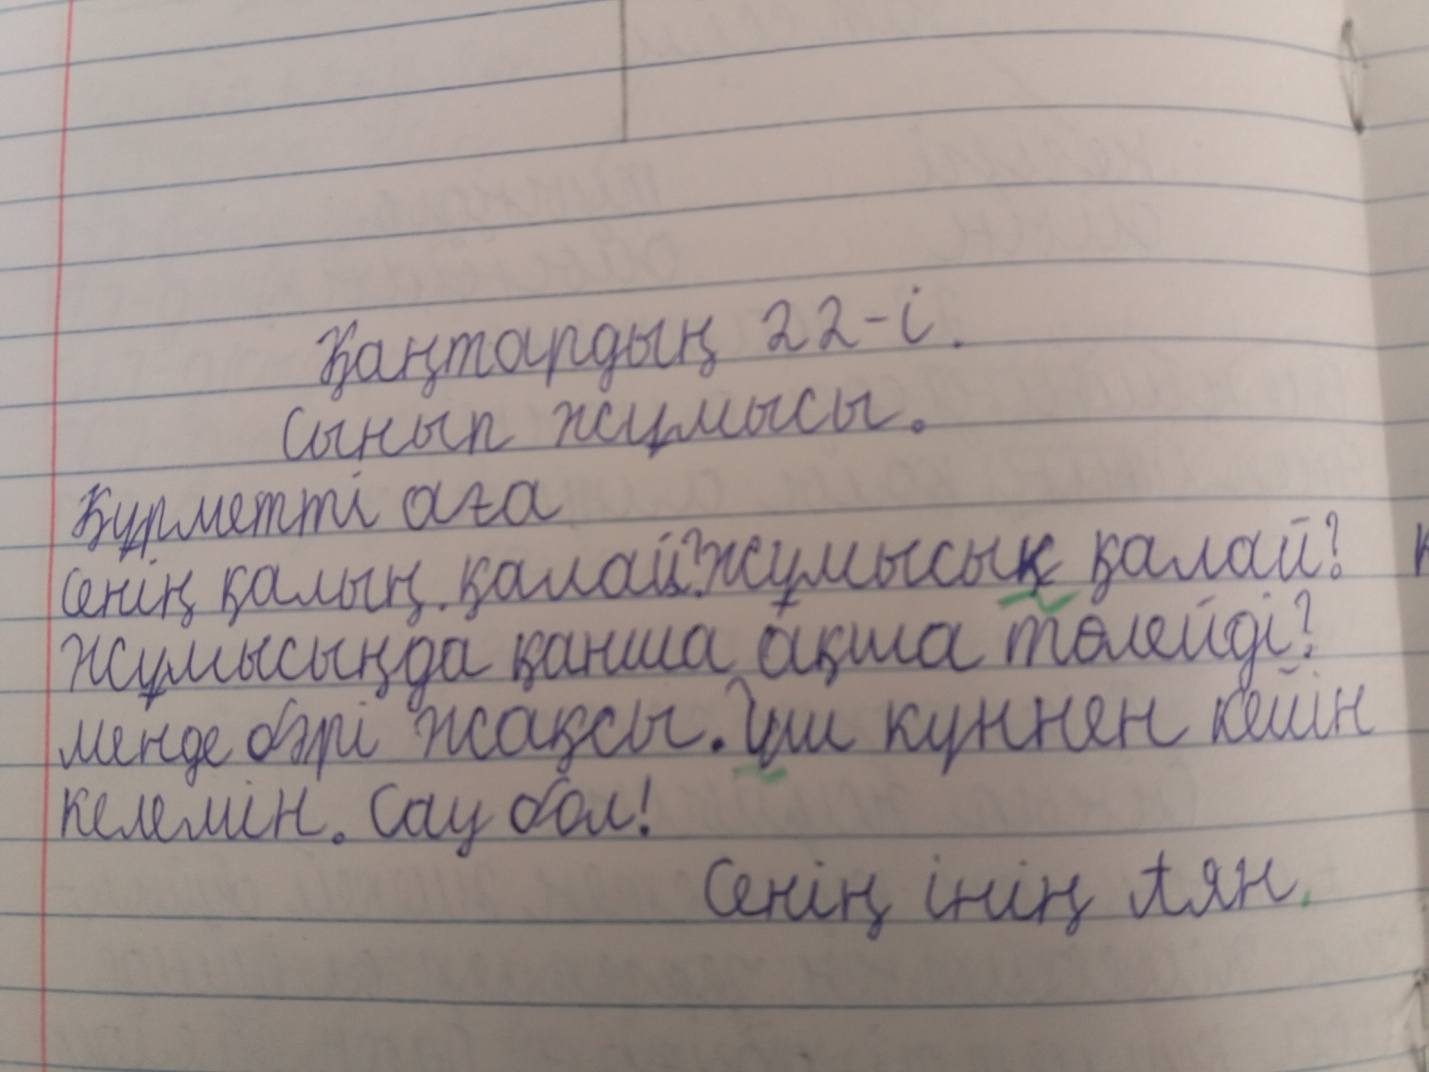 Қаңтардың 22-і.
Сынып жұмысы.
Құрметті аға
сенің қалың қалай? Жұмысық қалай?
Жұмысыңда қанша ақша төлейді?
менде бәрі жақсы. Үш куннен кейін
келемін. Сау бол!
Сенің інің Аян.